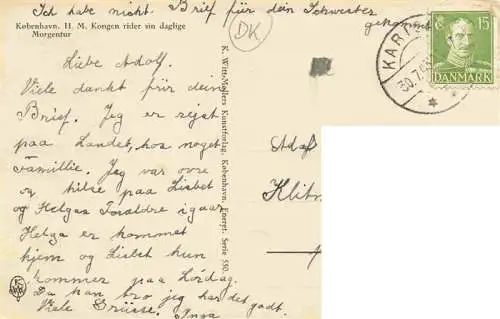 Ich habe nicht Brief für dein Schwester
gekommt
København. H. M. Kongen rider sin daglige
Morgentur
DK
Liebe Adolf.
Viele dankt für deine
Brief. Jeg er rejst
paa Landet, hos noget
Familie. Jeg var ovre
og hilse paa Lisbet
og Helgas Foraldre igaar
Helga er kommet
hjem og Lisbet kun
kommer paa Lørdag.
Du kan tro jeg har det godt.
Viele Grüsse. Inga
K. Witt-Møllers Kunstforlag, København. Eneret: Serie 550.
Adolf
Klit
KAR
30.7.
15
DANMARK